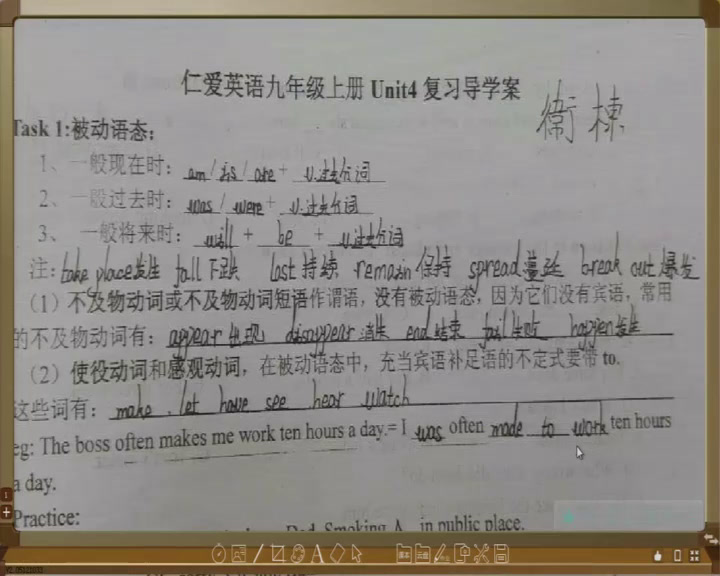 仁爱英语九年级上册 Unit4 复习导学案
衛 棟
Task 1:被动语态：
1、一般现在时： am / is / are + v.过去分词
2、一般过去时： was / were + v.过去分词
3、一般将来时： will + be + v.过去分词
注： take place发生 fall下跌 last持续 remain保持 spread蔓延 break out爆发
（1）不及物动词或不及物动词短语作谓语，没有被动语态，因为它们没有宾语，常用
的不及物动词有： appear出现 disappear消失 end结束 fail失败 happen发生
（2）使役动词和感观动词，在被动语态中，充当宾语补足语的不定式要带 to.
这些词有： make . let have see hear watch
eg: The boss often makes me work ten hours a day.= I was often made to work ten hours
a day.
Practice:
Dad. Smoking A in public place.